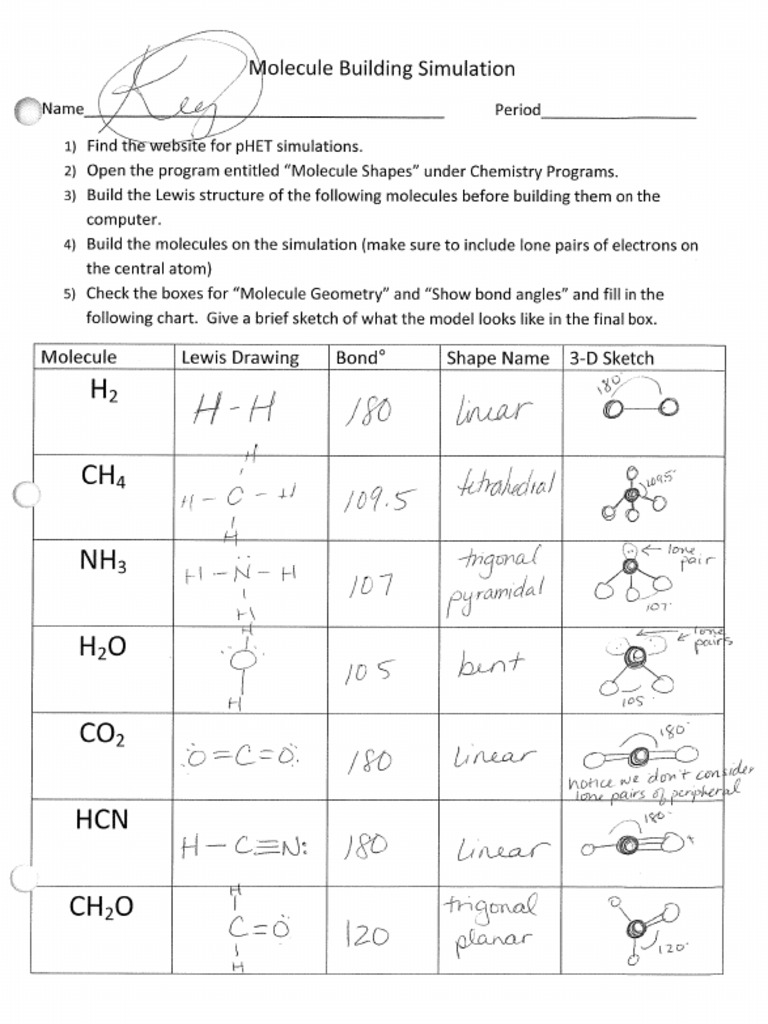 Molecule Building Simulation
Key
Name Period
1) Find the website for pHET simulations.
2) Open the program entitled “Molecule Shapes” under Chemistry Programs.
3) Build the Lewis structure of the following molecules before building them on the
computer.
4) Build the molecules on the simulation (make sure to include lone pairs of electrons on
the central atom)
5) Check the boxes for “Molecule Geometry” and “Show bond angles” and fill in the
following chart. Give a brief sketch of what the model looks like in the final box.
Molecule Lewis Drawing Bond° Shape Name 3-D Sketch
H₂ H-H 180 linear 180°
H
CH₄ H-C-H 109.5 tetrahedral 109.5°
H
NH₃ H-N-H 107 trigonal pyramidal ← lone pair 107°
H
H
H₂O O 105 bent ← lone pairs 105°
H
CO₂ O=C=O 180 linear 180°
notice we don't consider
lone pairs of peripheral
HCN H-C≡N: 180 Linear 180°
H
CH₂O C=O 120 trigonal planar 120°
H